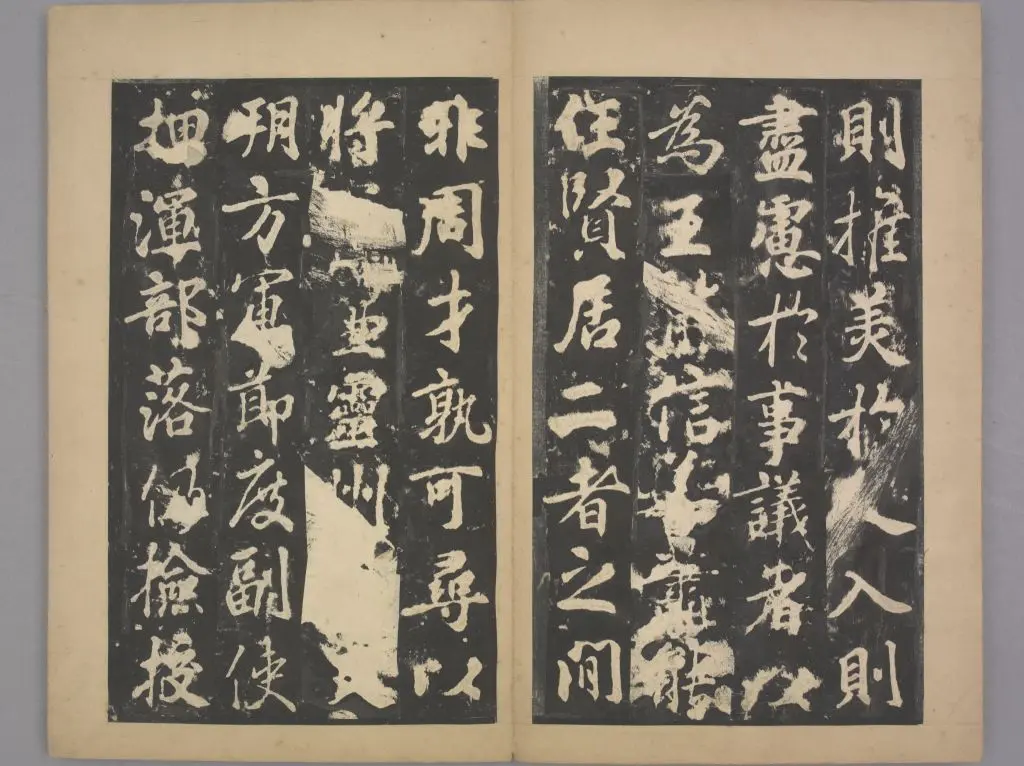 則推美於人入則
盡慮於事議者以
為王信肅能
任賢居二者之間
非周才孰可尋以
將靈州
朔方軍節度副使
押渾部落仍檢挍